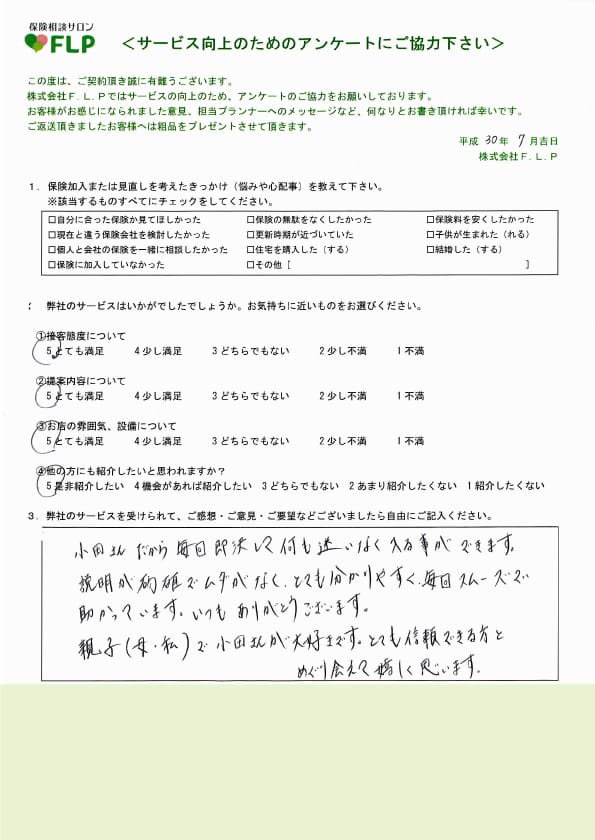 保険相談サロン
FLP
＜サービス向上のためのアンケートにご協力下さい＞
この度は、ご契約頂き誠に有難うございます。
株式会社Ｆ.Ｌ.Ｐではサービスの向上のため、アンケートのご協力をお願いしております。
お客様がお感じになられました意見、担当プランナーへのメッセージなど、何なりとお書き頂ければ幸いです。
ご返送頂きましたお客様へは粗品をプレゼントさせて頂きます。
平成 30 年 7 月吉日
株式会社Ｆ.Ｌ.Ｐ
１．保険加入または見直しを考えたきっかけ（悩みや心配事）を教えて下さい。
※該当するものすべてにチェックをしてください。
□自分に合った保険か見てほしかった □保険の無駄をなくしたかった □保険料を安くしたかった
□現在と違う保険会社を検討したかった □更新時期が近づいていた □子供が生まれた（れる）
□個人と会社の保険を一緒に相談したかった □住宅を購入した（する） □結婚した（する）
□保険に加入していなかった □その他［ ］
弊社のサービスはいかがでしたでしょうか。お気持ちに近いものをお選びください。
①接客態度について
５とても満足 ４少し満足 ３どちらでもない ２少し不満 １不満
②提案内容について
５とても満足 ４少し満足 ３どちらでもない ２少し不満 １不満
③お店の雰囲気、設備について
５とても満足 ４少し満足 ３どちらでもない ２少し不満 １不満
④他の方にも紹介したいと思われますか？
５是非紹介したい ４機会があれば紹介したい ３どちらでもない ２あまり紹介したくない １紹介したくない
３．弊社のサービスを受けられて、ご感想・ご意見・ご要望などございましたら自由にご記入ください。
小田さんだから毎回即決して何も迷いなく入る事ができます。
説明が的確でムダがなく、とても分かりやすく、毎回スムーズで
助かっています。いつもありがとうございます。
親子(母・私)で小田さんが大好きです。とても信頼できる方と
めぐり会えて嬉しく思います。